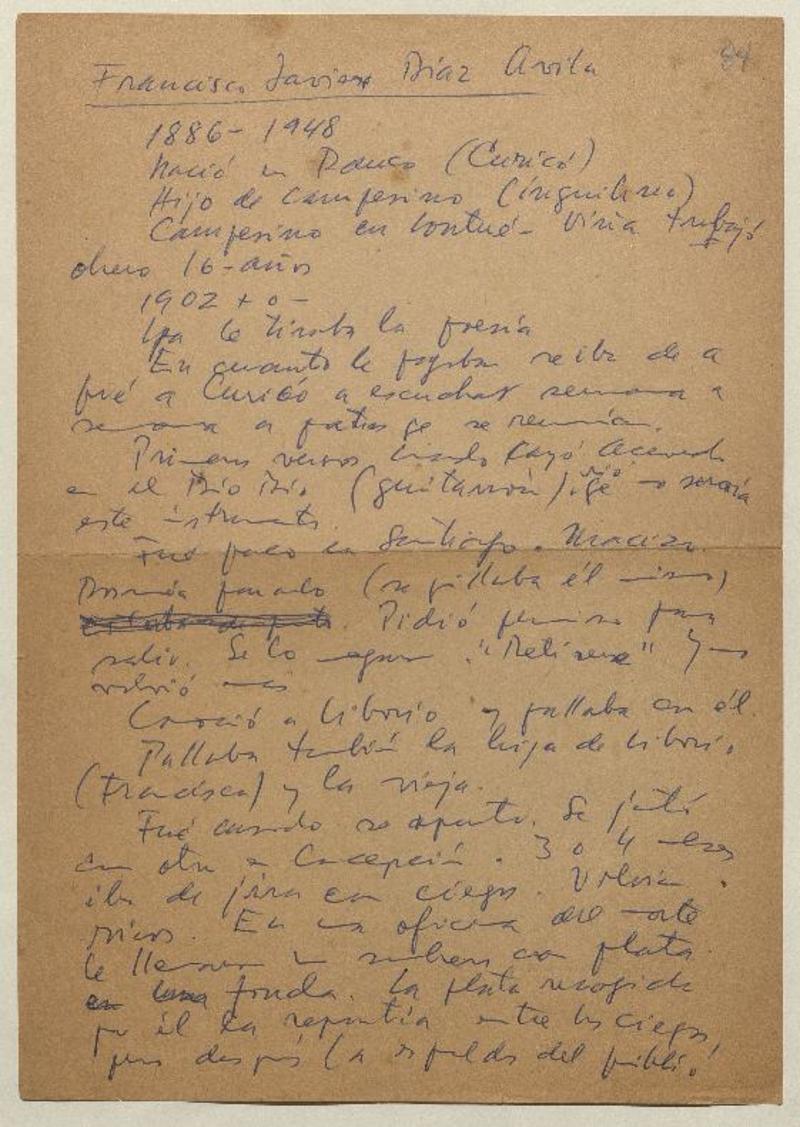 84
Francisco Javier Díaz Avila
1886 - 1948
Nació en Rauco (Curicó)
Hijo de campesino (inquilino)
Campesino en Lontué - Viña trabajó
obrero 16 - años
1902 + o -
le tiraba la poesía
En cuanto le pagaban se iba de a
pié a Curicó a escuchar semana a
semana a poetas qe se reunían.
Primeros versos Acevedo
en el Bío Bío. (guitarrón)
este instrumento.
Fué paco en Santiago. Macizo.
Dormía parado (se pillaba él mismo)
Pidió permiso para
salir. Se lo negaron. "Retírese" y no
volvió más
Conoció a Liborio y pallaba con él.
Pallaba también la hija de Liborio.
(Francisca) y la vieja.
Fué casado se apartó. Se juntó
con otra en Concepción. 3 o 4 meses
iba de jira con ciegos.
En una oficina del norte
le llenaron un sombrero con plata
en una fonda. La plata recogida
por él la repartía entre los ciegos,
pero después (a espaldas del público